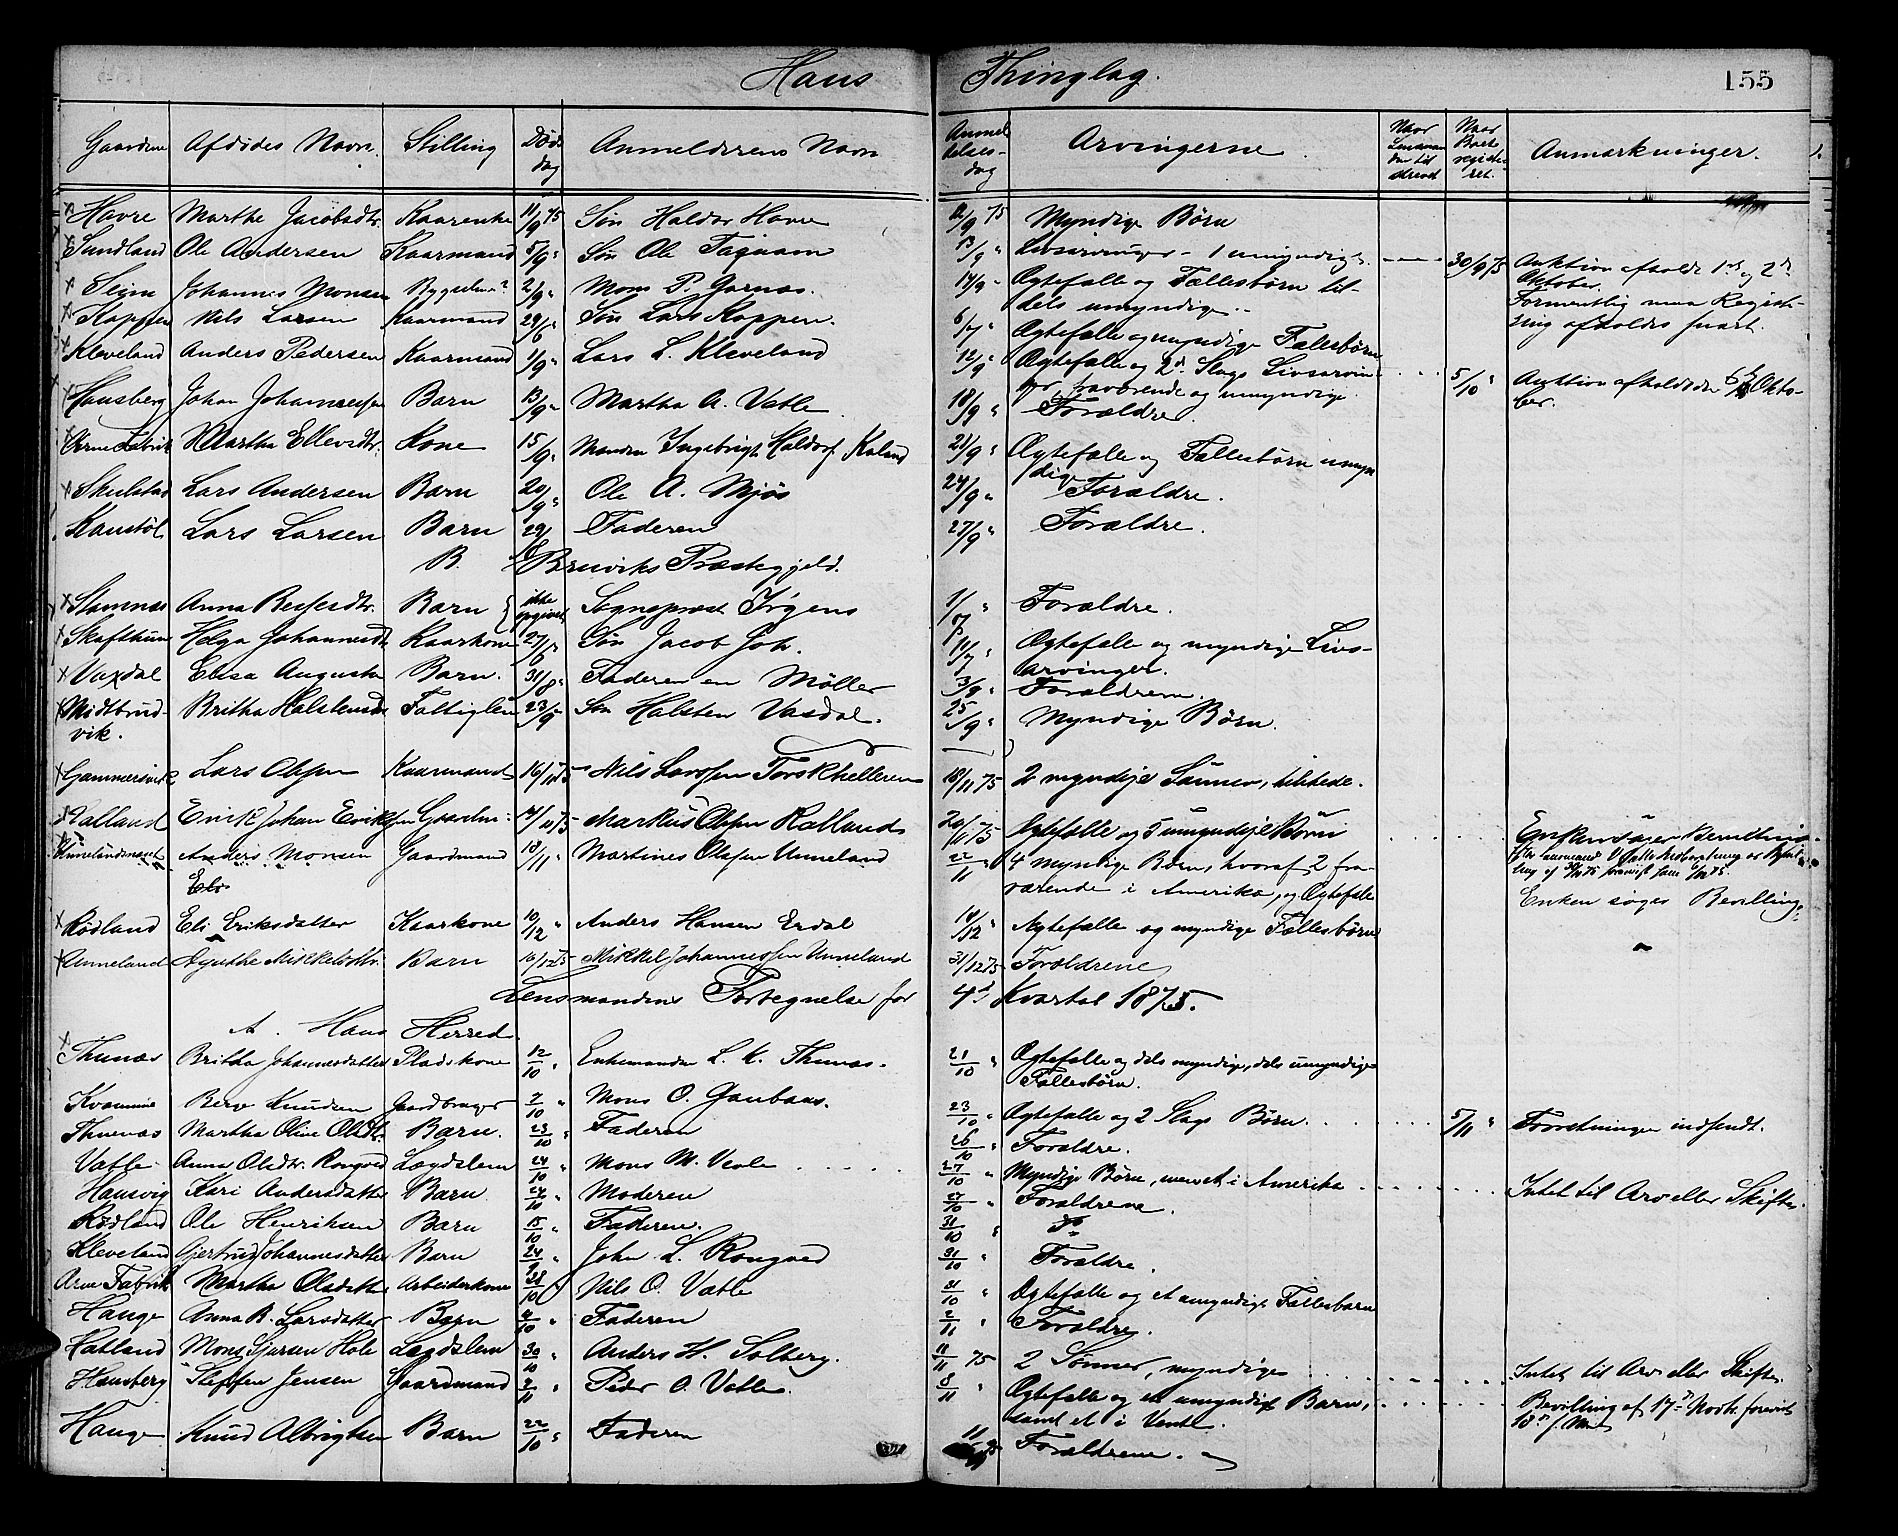 Haus Thinglag. 155
Gaardene Afdødes Navn. Stilling Døds dag Anmelderens Navn Anmeldelsesdag Arvingerne Naar Naar Boet registeret. Anmærkninger.
Havre Marthe Jacobsdtr. 11/9 75 Søn Haldor Havre 12/9 75 Myndige Børn
Sundland Ole Andersen Kaarmand 5/9 " Søn Ole 13/9 " Livsarvinger - 1 umyndig. 30/9 75 Auktion afholdt 1ste og 2den Oktober.
Seim Johannes Monsen 2/9 " Mons P. Garnæs. 14/9 " Ægtefælle og Fællesbørn til-
dels umyndige. Formentlig maa Registe-
ring afholdes snart.
Koppen Nils Larsen Kaarmand 29/6 " Søn Lars Koppen. 6/7 " Ægtefælle og myndige Fællesbørn
Kleveland Anders Pedersen Kaarmand 1/9 " Lars L. Kleveland 12/9 " Ægtefælle og 2de Slags Livsarvin-
ger, fraværende og umyndige. 5/10 " Auktion afholdtes Okto-
ber.
Hausberg Johan Johannessen Barn 13/9 " Martha A. Vatle 18/9 " Forældre
Arne Fabrik Martha Ellevsdtr. Kone 15/9 " Manden Ingebrigt Haldorsen Kaland 21/9 " Ægtefælle og Fællesbørn umyn
dige
Skulstad Lars Andersen Barn 20/9 " Ole A. Mjøs 24/9 " Forældre.
Kamstøl Lars Larsen Barn 29/ Faderen 27/9 " Forældre.
B. Bruviks Præstegjeld.
Stamnæs Anna Barn ikke opgivet Sogneprest Irgens 1/7 " Forældre.
Skafthun Helga Johannesdtr. Kaarkone 27/6 Søn Jacob Joh. Ægtefælle og myndige Livs-
arvinger.
Vaxdal Elisa Augusta Barn. 31/8 " Faderen en Møller 3/9 " Forældrene.
Modtbrud-
vik. Britha Halstensdtr. Fattiglem 23/9 " Søn Halsten Vaxdal. 25/9 " Myndige Børn.
Gammersvik Lars Olsen Kaarmand 16/11 75 Nils Larssen Torskhelleren 18/11 75 2 myndige Sønner, tilstede.
Erik Johan Eriksen Gaardm: 75 Markus Olsen Rølland 20/11 75 Ægtefælle og umyndige Børn Enken søger Bevilling.
Unneland Anders Monsen Gaardmand 18/11 Martines Olsen Unneland 22/11 " 4 myndige Børn, hvoraf 2 fra-
værende i Amerika, og Ægtefælle Enken søger Bevilling.
Rødland Eli Eriksdatter Kaarkone 10/12 " Anders Hansen Erdal 14/12 " Ægtefælle og myndige Fællesbørn
Unneland Agathe Mikkelsdtr. Barn 16/12 75 Mikkel Johannessen Unneland 31/12 75 Forældrene
Lensmandens Fortegnelse for 4de Kvartal 1875.
A. Haus Herred.
Thunæs Britha Johannesdatter Pladskone 12/10 " Enkemanden L. K. Thunæs. 21/10 " Ægtefælle og dels myndige, dels umyndige
Fællesbørn.
Kvamme Berge Knudsen Gaardbruger 7/10 " Mons O. Gaubaas. 23/10 " Ægtefælle og 2 Slags Børn. 5/11 " Forretningen indsendt.
Thunæs Martha Oline Olsdtr. Barn. 23/10 " Faderen 26/10 " Forældre.
Vatle Anna Olsdtr. Rongved Lægdslem 24/10 " Mons M. Veole 27/10 " Myndige Børn, uvenet i Amerika Intet til Arv eller Skifte.
Hausvig Kari Andersdatter Barn 24/10 " Moderen 27/10 " Forældrene.
Rødland Ole Henriksen Barn 15/10 " Faderen. 31/10 " do
Kleveland Gjertrud Johannesdatter Barn 24/10 John L. Rongved 31/10 " Forældre.
Arne Fabrik Martha Olsdatter Arbeiderkone 28/10 Nils O. Vatle 31/10 " Ægtefælle og et umyndige Fællesbarn
Hauge Anna B. Larsdatter Barn /10 " Faderen 2/11 " Forældre.
Hatland Mons Sjursen Hole Lægdslem 30/10 " Anders H. Solberg. 11/11 75 2 Sønner, myndige Intet til Arv eller Skifte.
Hausberg Steffen Jensen Gaardmand 2/11 " Peder O. Vatle. 8/11 " Ægtefælle og et umyndigt Barn,
samt et i Vente Bevilling af 17de Novbr. forevist
18de s. Mnd
Hauge Knud Albrigtsen Barn 22/10 " Faderen 11/ Forældrene.